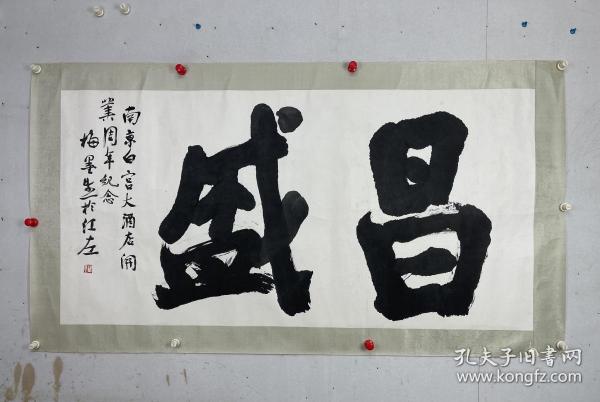 昌盛
南京白宫大酒店开
业周年纪念
梅墨生於江左
孔夫子旧书网
www.kongfz.com